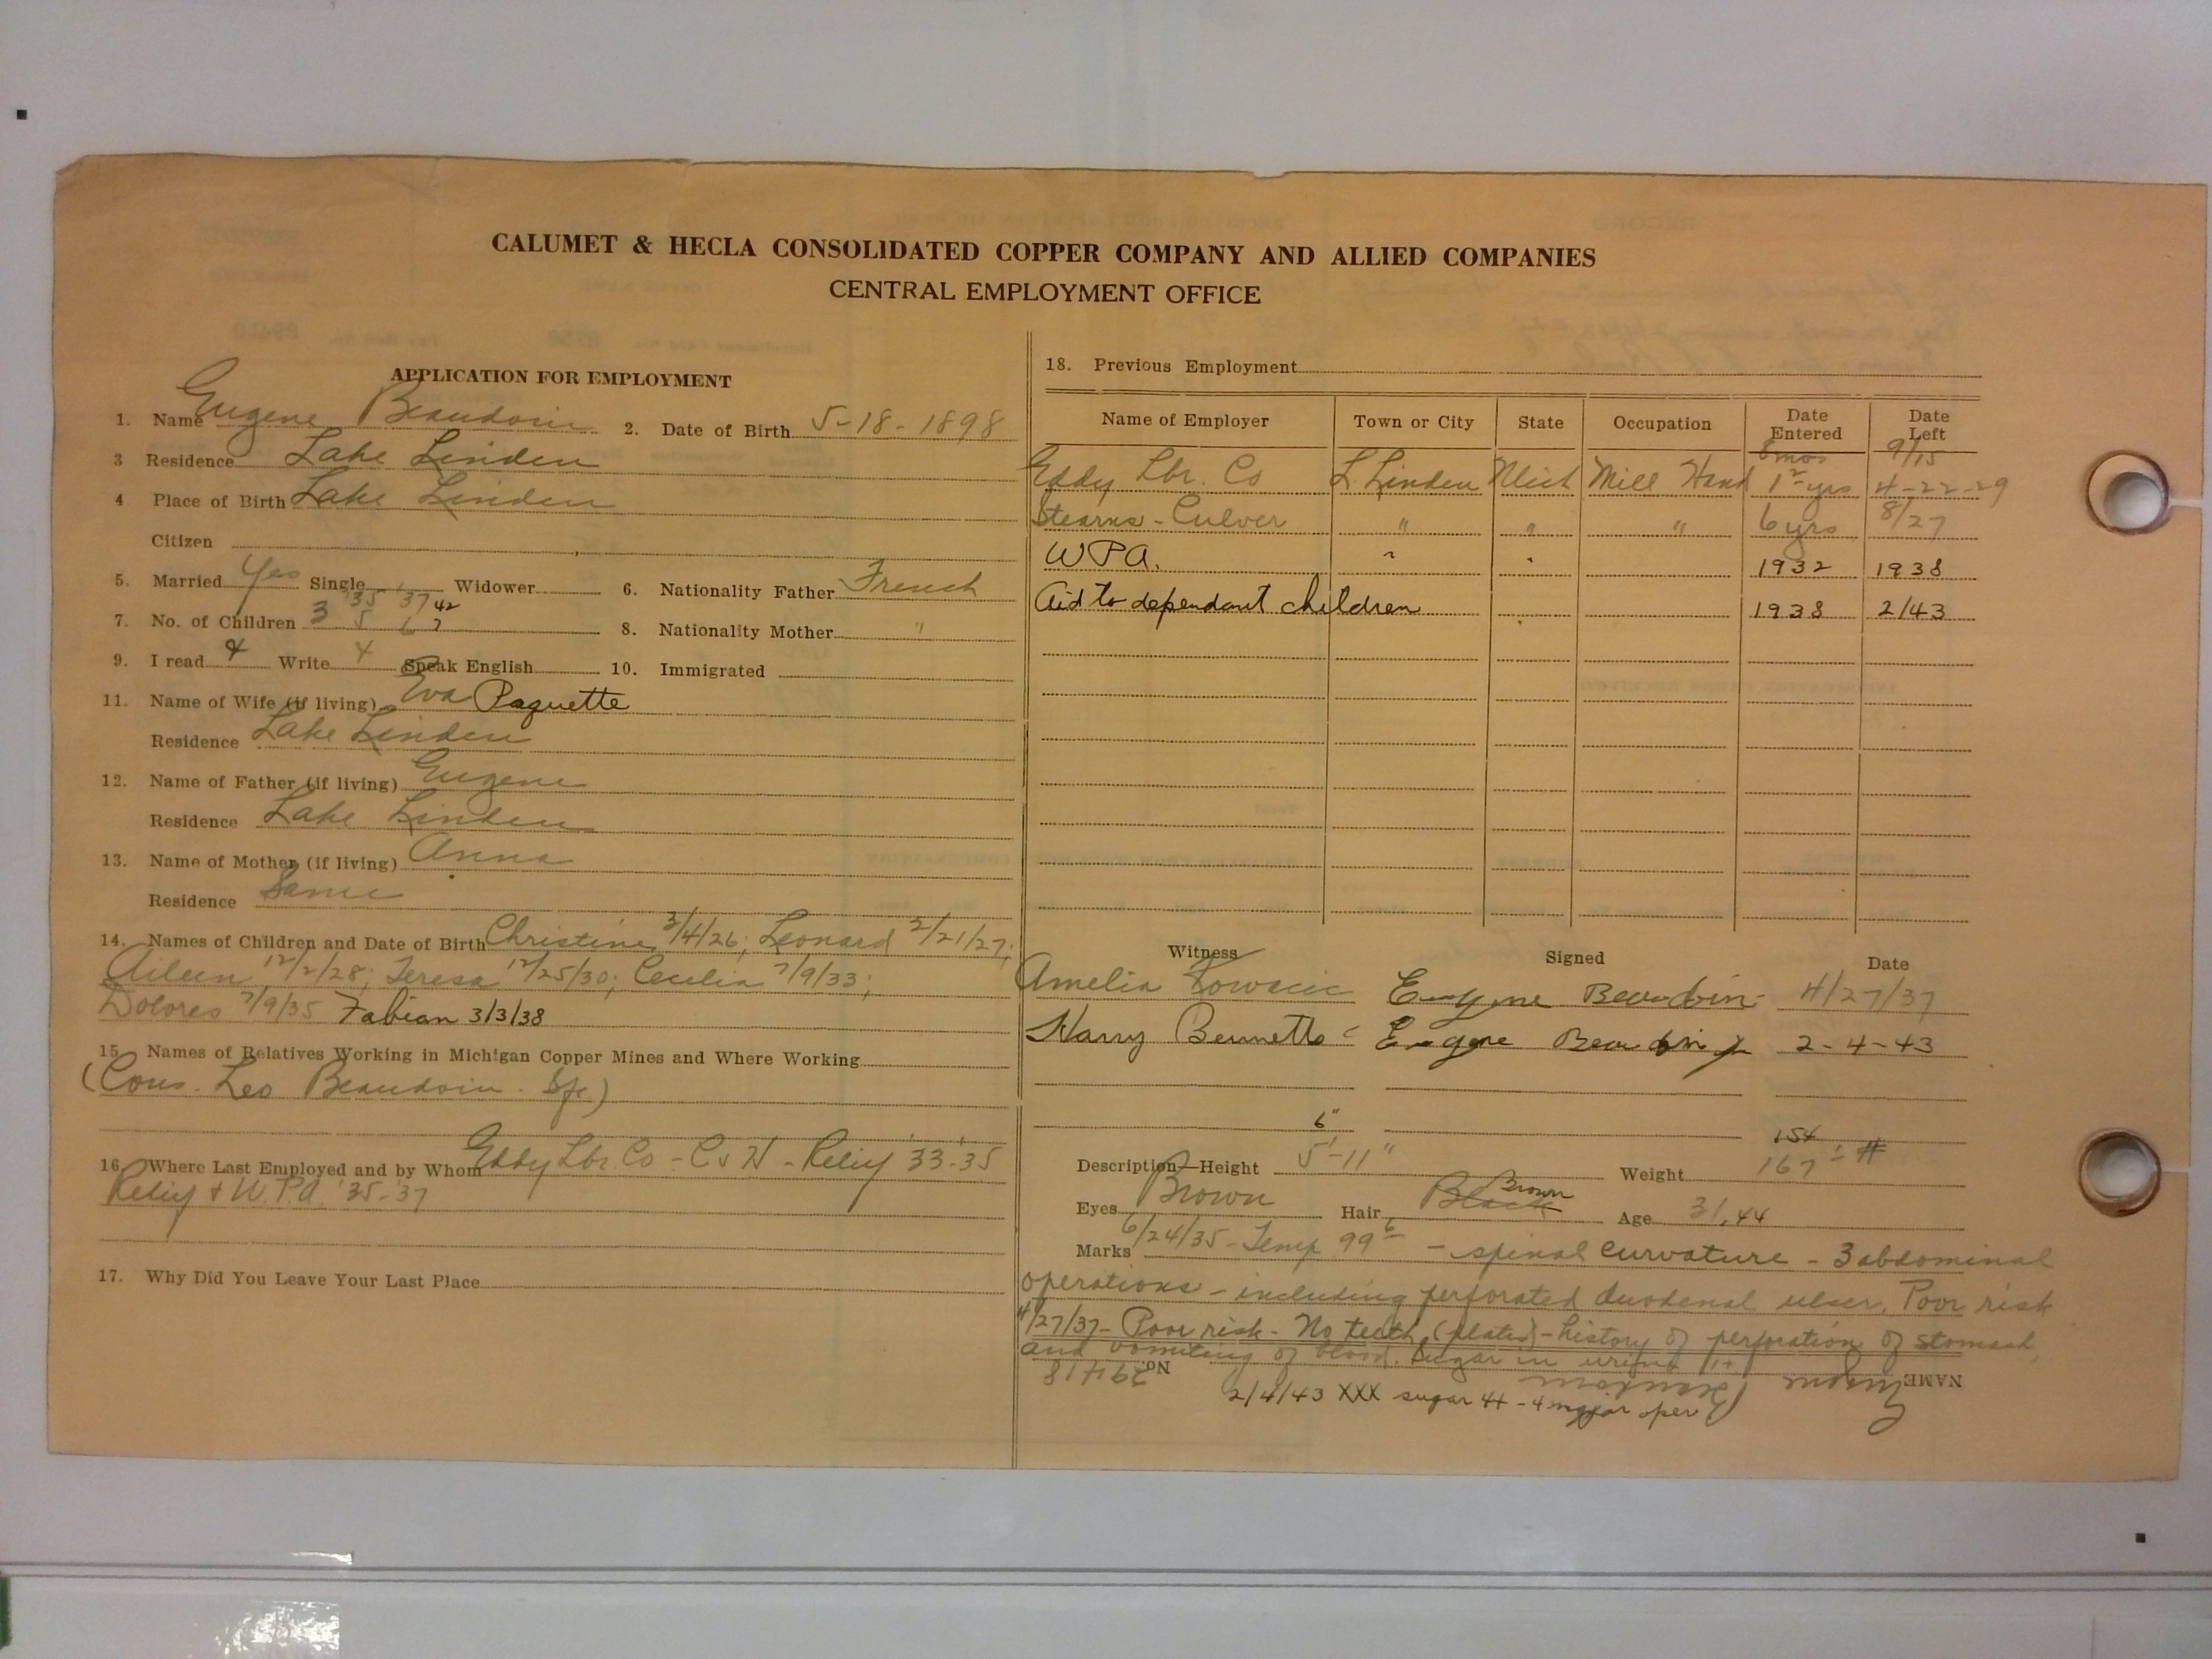 CALUMET & HECLA CONSOLIDATED COPPER COMPANY AND ALLIED COMPANIES
CENTRAL EMPLOYMENT OFFICE
APPLICATION FOR EMPLOYMENT
1. Name Eugene Beaudoin 2. Date of Birth 5-18-1898
3 Residence Lake Linden
4 Place of Birth Lake Linden
Citizen
5. Married Yes Single Widower 6. Nationality Father French
'35 '37 42
7. No. of Children 3 5 6 7 8. Nationality Mother "
9. I read 4 Write 4 Speak English 10. Immigrated
11. Name of Wife (if living) Eva Paquette
Residence Lake Linden
12. Name of Father (if living) Eugene
Residence Lake Linden
13. Name of Mother (if living) Anna
Residence Same
14. Names of Children and Date of Birth Christine 3/4/26; Leonard 2/21/27;
Aileen 12/2/28; Teresa 12/25/30; Cecilia 7/9/33;
Dolores 7/9/35 Fabian 3/3/38
15 Names of Relatives Working in Michigan Copper Mines and Where Working
(Cous. Leo Beaudoin
16. Where Last Employed and by Whom Eddy Lbr. Co - C & H - Relief '33-'35
Relief & W.P.A. '35-'37
17. Why Did You Leave Your Last Place
18. Previous Employment
Name of Employer Town or City State Occupation Date Entered Date Left
6 mos 9/15
Eddy Lbr. Co L. Linden Mich Mill Hand yrs 4-22-29
Stearns - Culver " " " 6 yrs 8/27
WPA. " " 1932 1938
Aid to dependant children 1938 2/43
Witness Signed Date
Amelia Eugene Beaudoin 4/27/37
Harry Bennetts Eugene Beaudoin Jr 2-4-43
6" 154
Description—Height 5'-11" Weight 167 #
Eyes Brown Hair Black Brown Age 31, 44
Marks 6/24/35 - Temp 99 6 - spinal curvature - 3 abdominal
operations - including perforated duodenal ulcer. Poor risk
4/27/37 - Poor risk - No teeth (plates) - history of perforation of stomach,
and vomiting of blood. Sugar in urine
NAME Eugene Beaudoin No. 29418
2/4/43 XXX sugar 4+ - 4 major oper